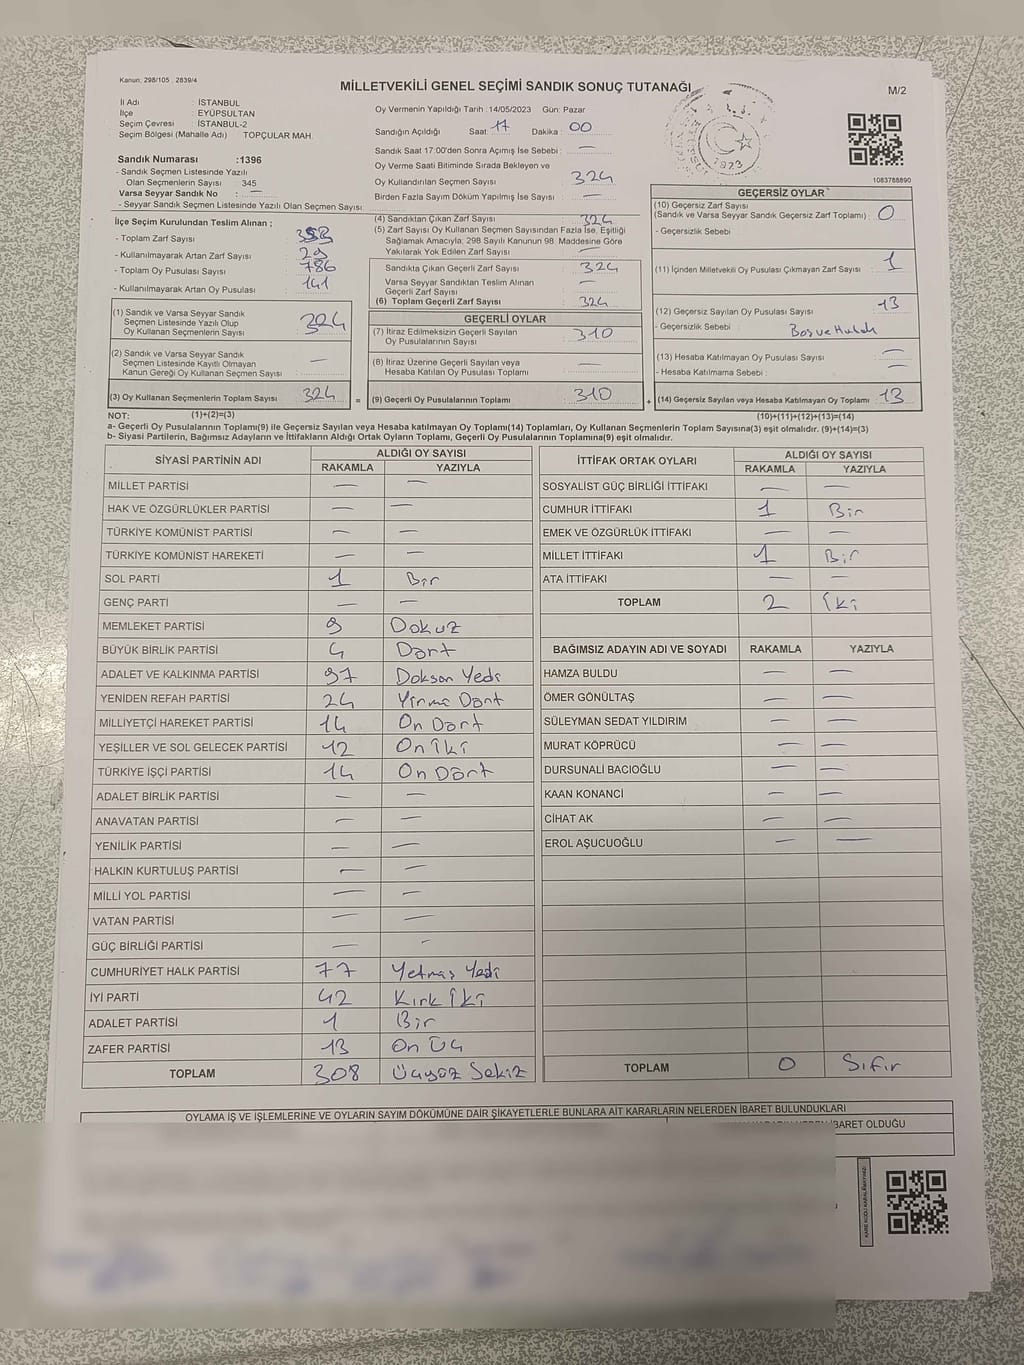 Kanun; 298/105 : 2839/4
MİLLETVEKİLİ GENEL SEÇİMİ SANDIK SONUÇ TUTANAĞI
M/2
İl Adı : İSTANBUL
İlçe : EYÜPSULTAN
Seçim Çevresi : İSTANBUL-2
Seçim Bölgesi (Mahalle Adı) TOPÇULAR MAH.
Sandık Numarası :1396
- Sandık Seçmen Listesinde Yazılı
Olan Seçmenlerin Sayısı 345
Varsa Seyyar Sandık No : —
- Seyyar Sandık Seçmen Listesinde Yazılı Olan Seçmen Sayısı:
İlçe Seçim Kurulundan Teslim Alınan ;
- Toplam Zarf Sayısı
- Kullanılmayarak Artan Zarf Sayısı 29
- Toplam Oy Pusulası Sayısı 786
- Kullanılmayarak Artan Oy Pusulası 141
(1) Sandık ve Varsa Seyyar Sandık
Seçmen Listesinde Yazılı Olup
Oy Kullanan Seçmenlerin Sayısı 324
(2) Sandık ve Varsa Seyyar Sandık
Seçmen Listesinde Kayıtlı Olmayan
Kanun Gereği Oy Kullanan Seçmen Sayısı —
(3) Oy Kullanan Seçmenlerin Toplam Sayısı 324 =
Oy Vermenin Yapıldığı Tarih :14/05/2023 Gün: Pazar
Sandığın Açıldığı Saat: 17 Dakika : 00
Sandık Saat 17:00'den Sonra Açımış İse Sebebi : —
Oy Verme Saati Bitiminde Sırada Bekleyen ve
Oy Kullandırılan Seçmen Sayısı 324
Birden Fazla Sayım Döküm Yapılmış İse Sayısı —
(4) Sandıktan Çıkan Zarf Sayısı 324
(5) Zarf Sayısı Oy Kullanan Seçmen Sayısından Fazla İse, Eşitliği
Sağlamak Amacıyla; 298 Sayılı Kanunun 98. Maddesine Göre
Yakılarak Yok Edilen Zarf Sayısı —
Sandıkta Çıkan Geçerli Zarf Sayısı 324
Varsa Seyyar Sandıktan Teslim Alınan
Geçerli Zarf Sayısı —
(6) Toplam Geçerli Zarf Sayısı 324
GEÇERLİ OYLAR
(7) İtiraz Edilmeksizin Geçerli Sayılan
Oy Pusulalarının Sayısı 310
(8) İtiraz Üzerine Geçerli Sayılan veya
Hesaba Katılan Oy Pusulası Toplamı —
(9) Geçerli Oy Pusulalarının Toplamı 310 +
1923
1083788890
GEÇERSİZ OYLAR
(10) Geçersiz Zarf Sayısı
(Sandık ve Varsa Seyyar Sandık Geçersiz Zarf Toplamı) : 0
- Geçersizlik Sebebi
(11) İçinden Milletvekili Oy Pusulası Çıkmayan Zarf Sayısı 1
(12) Geçersiz Sayılan Oy Pusulası Sayısı 13
- Geçersizlik Sebebi :
(13) Hesaba Katılmayan Oy Pusulası Sayısı —
- Hesaba Katılmama Sebebi : —
(14) Geçersiz Sayılan veya Hesaba Katılmayan Oy Toplamı 13
NOT: (1)+(2)=(3) (10)+(11)+(12)+(13)=(14)
a- Geçerli Oy Pusulalarının Toplamı(9) ile Geçersiz Sayılan veya Hesaba katılmayan Oy Toplamı(14) Toplamları, Oy Kullanan Seçmenlerin Toplam Sayısına(3) eşit olmalıdır. (9)+(14)=(3)
b- Siyasi Partilerin, Bağımsız Adayların ve İttifakların Aldığı Ortak Oyların Toplamı, Geçerli Oy Pusulalarının Toplamına(9) eşit olmalıdır.
SİYASİ PARTİNİN ADI ALDIĞI OY SAYISI
RAKAMLA YAZIYLA
MİLLET PARTİSİ — —
HAK VE ÖZGÜRLÜKLER PARTİSİ — —
TÜRKİYE KOMÜNİST PARTİSİ — —
TÜRKİYE KOMÜNİST HAREKETİ — —
SOL PARTİ 1 Bir
GENÇ PARTİ — —
MEMLEKET PARTİSİ 9 Dokuz
BÜYÜK BİRLİK PARTİSİ 4 Dört
ADALET VE KALKINMA PARTİSİ 97 Doksan Yedi
YENİDEN REFAH PARTİSİ 24 Yirmi Dört
MİLLİYETÇİ HAREKET PARTİSİ 14 On Dört
YEŞİLLER VE SOL GELECEK PARTİSİ 12 On İki
TÜRKİYE İŞÇİ PARTİSİ 14 On Dört
ADALET BİRLİK PARTİSİ — —
ANAVATAN PARTİSİ — —
YENİLİK PARTİSİ — —
HALKIN KURTULUŞ PARTİSİ — —
MİLLİ YOL PARTİSİ — —
VATAN PARTİSİ — —
GÜÇ BİRLİĞİ PARTİSİ — —
CUMHURİYET HALK PARTİSİ 77 Yetmiş Yedi
İYİ PARTİ 42 Kırk İki
ADALET PARTİSİ 1 Bir
ZAFER PARTİSİ 13 On Üç
TOPLAM 308 Üçyüz Sekiz
İTTİFAK ORTAK OYLARI ALDIĞI OY SAYISI
RAKAMLA YAZIYLA
SOSYALİST GÜÇ BİRLİĞİ İTTİFAKI — —
CUMHUR İTTİFAKI 1 Bir
EMEK VE ÖZGÜRLÜK İTTİFAKI — —
MİLLET İTTİFAKI 1 Bir
ATA İTTİFAKI — —
TOPLAM 2 İki
BAĞIMSIZ ADAYIN ADI VE SOYADI RAKAMLA YAZIYLA
HAMZA BULDU — —
ÖMER GÖNÜLTAŞ — —
SÜLEYMAN SEDAT YILDIRIM — —
MURAT KÖPRÜCÜ — —
DURSUNALİ BACIOĞLU — —
KAAN KONANCİ — —
CİHAT AK — —
EROL AŞUCUOĞLU — —
TOPLAM 0 Sıfır
OYLAMA İŞ VE İŞLEMLERİNE VE OYLARIN SAYIM DÖKÜMÜNE DAİR ŞİKAYETLERLE BUNLARA AİT KARARLARIN NELERDEN İBARET BULUNDUKLARI
İBARET OLDUĞU